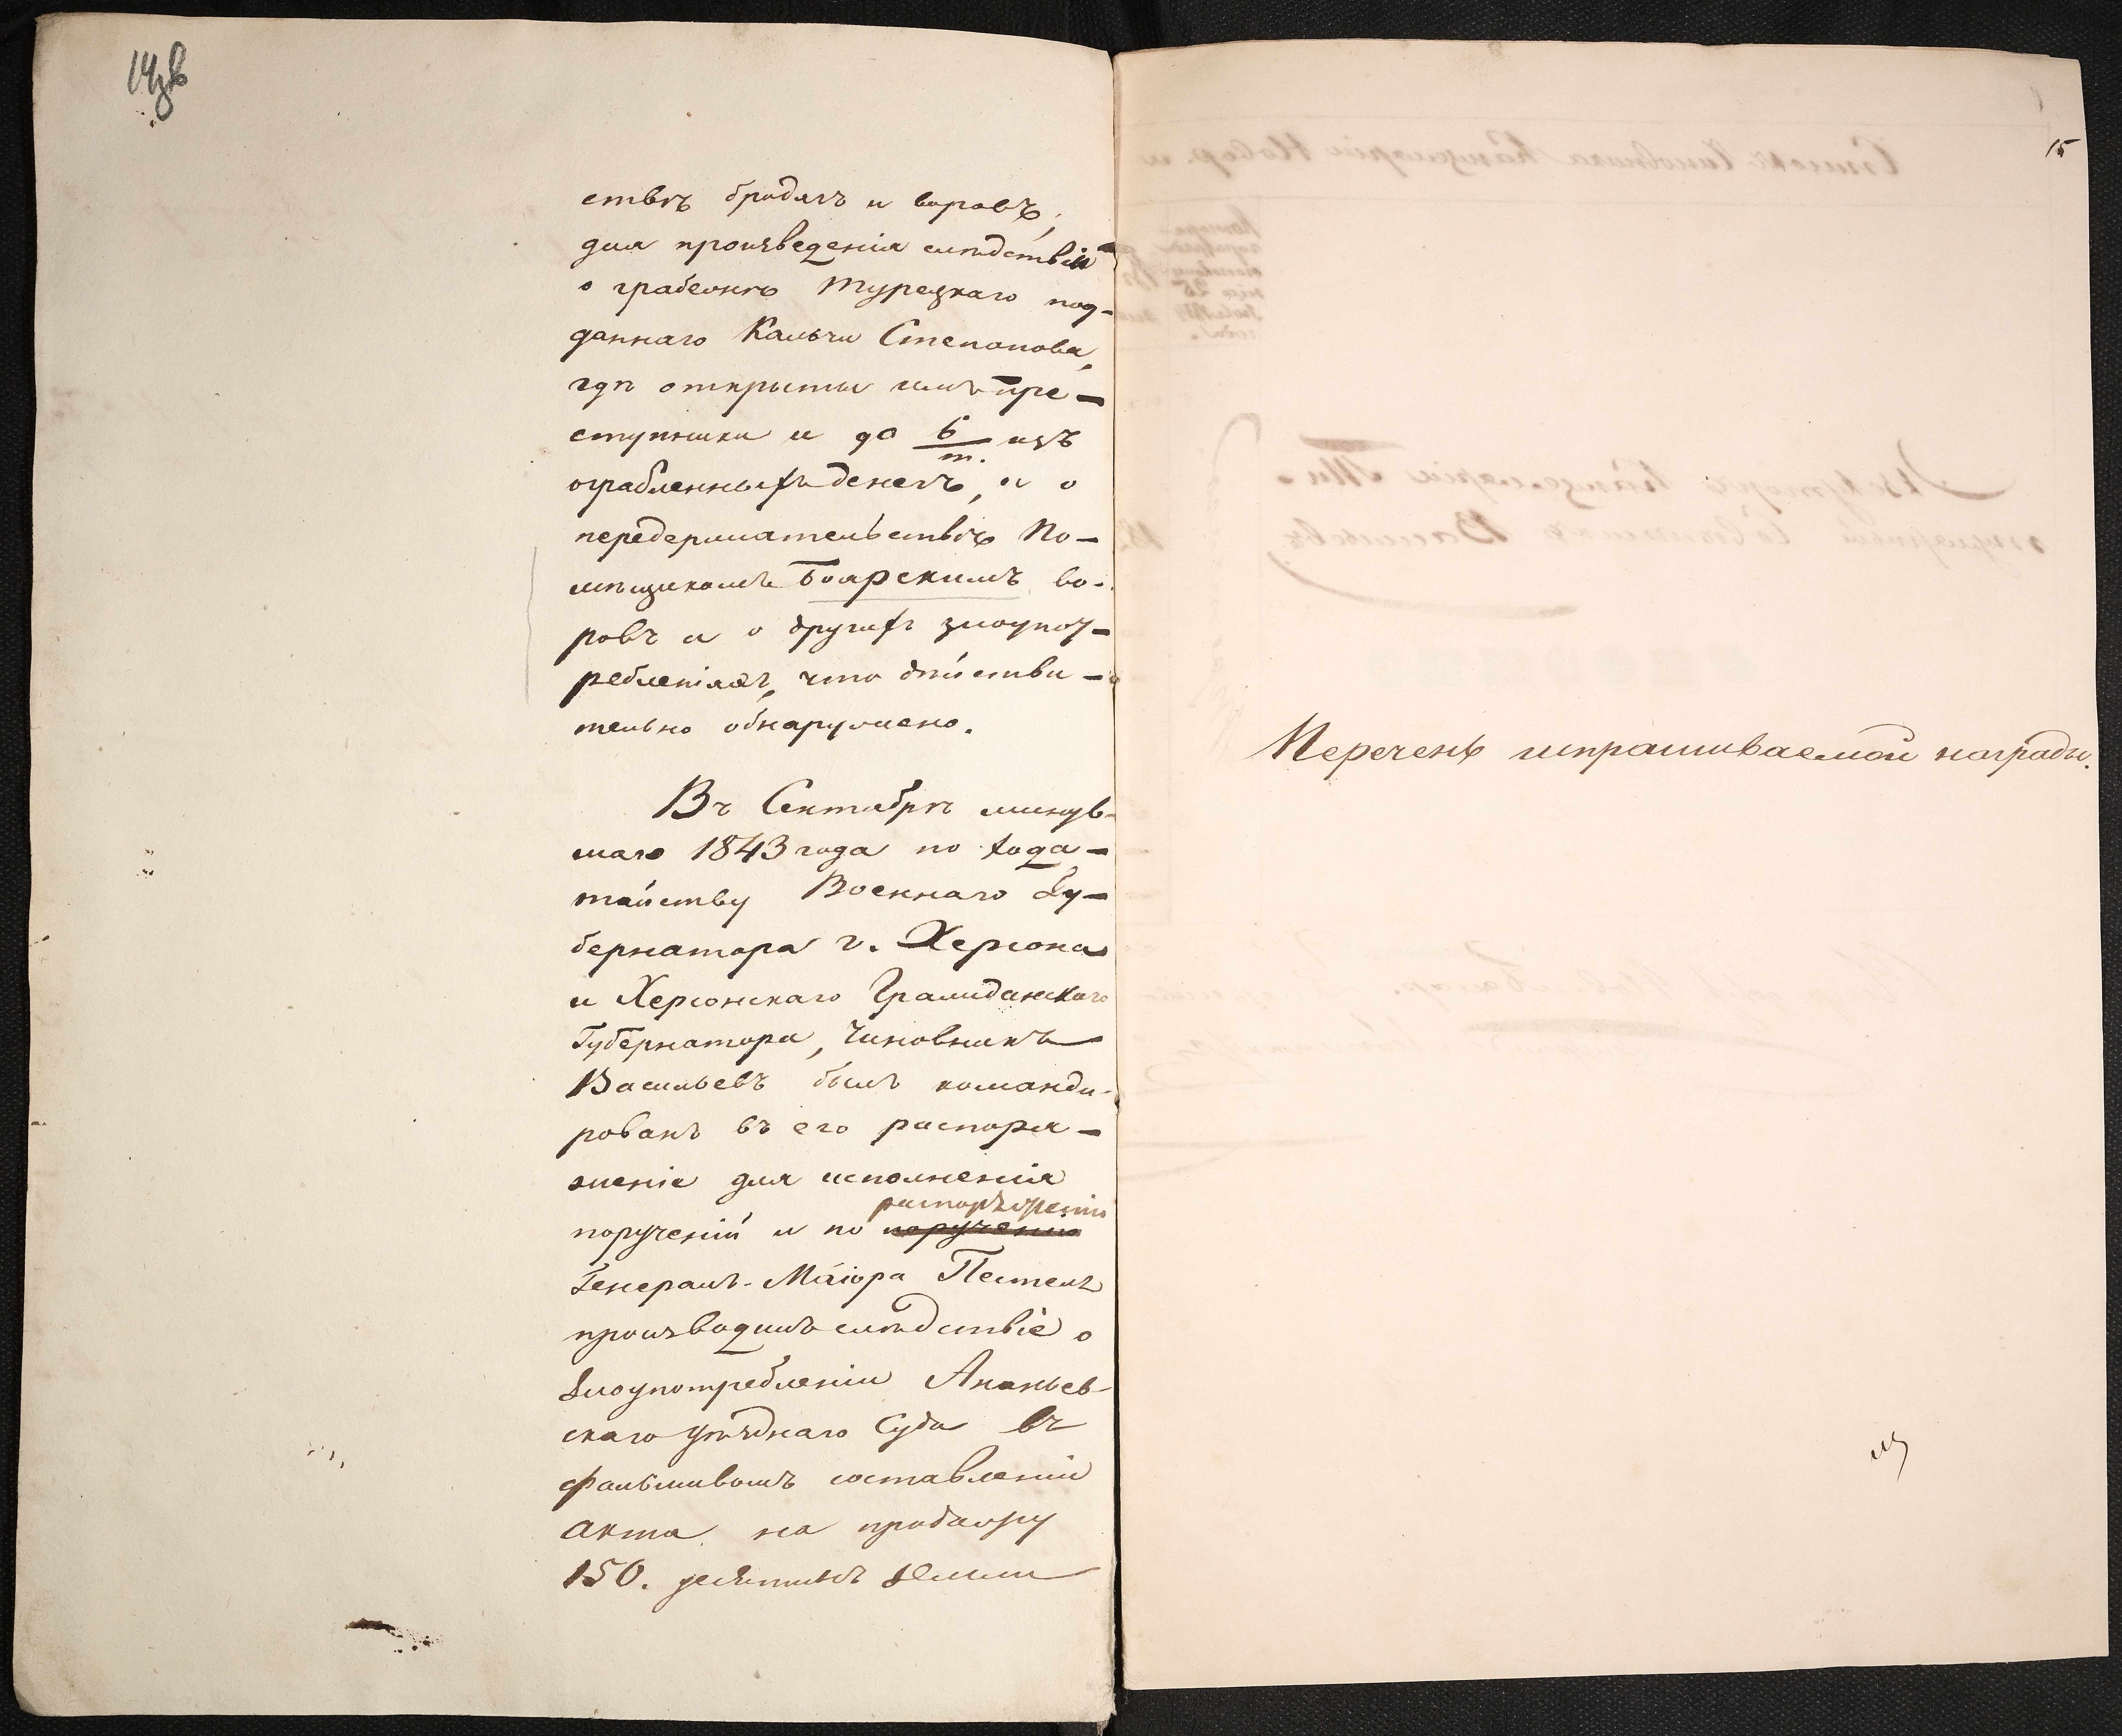 14 зв
ствѣ бродягъ и воровъ,
для произведенія слѣдствій
о грабежѣ Турецкаго под-
даннаго Кальчи Степанова,
гдѣ открыты имъ пре-
ступники и до 6/т. изъ
ограбленныхъ денегъ, и о
передержательствѣ По-
мѣщикомъ Боярскимъ во-
ровъ и о другихъ злоупот-
ребленіяхъ, что дѣйстви-
тельно обнаружено.
Въ Сентябрѣ минув-
шаго 1843 года по хода-
тайству Военнаго Гу-
бернатора г. Херсона
и Херсонскаго Гражданскаго
Губернатора, Чиновникъ
Васильевъ былъ команди-
рованъ въ его распоря-
женіе для исполненія
распоряженію
порученій и по порученію
Генералъ-Маіора Пестеля
производилъ слѣдствіе о
злоупотребленіи Ананьев-
скаго уѣзднаго Суда въ
фальшивомъ составленіи
акта на продажу
150. десятинъ земли
15
Перечень испрашиваемой награды.